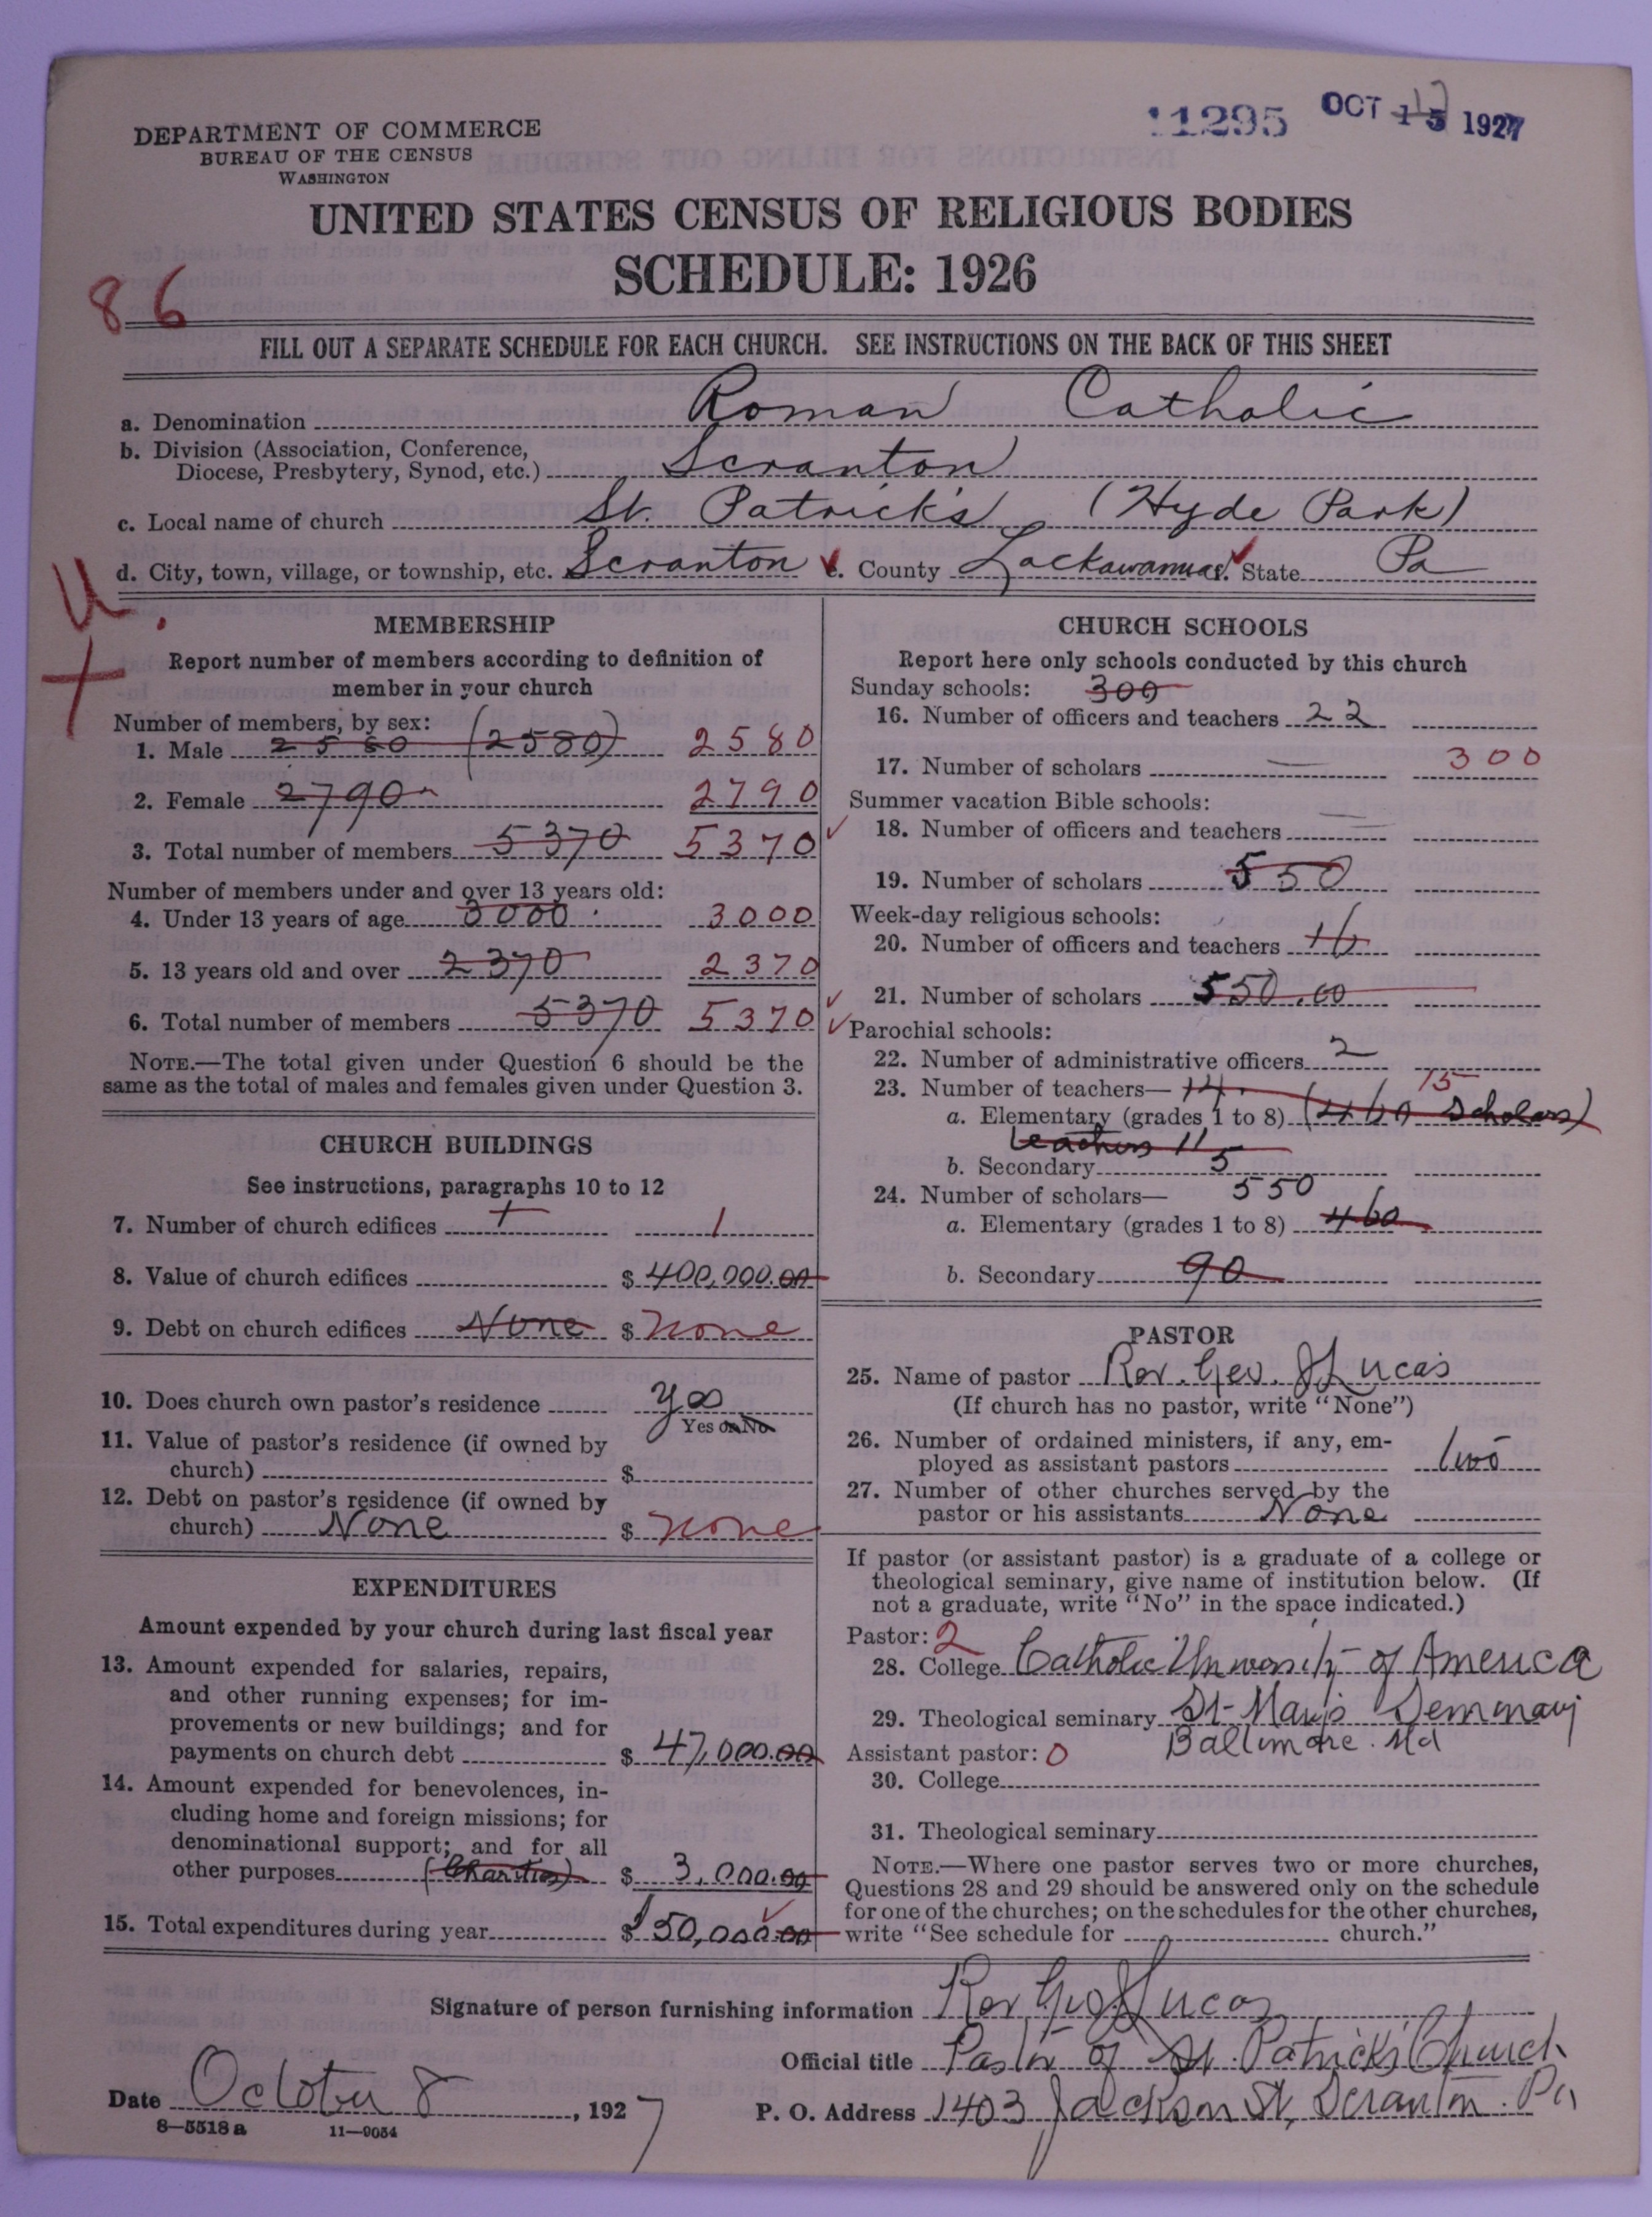 11295 OCT 15 1927
DEPARTMENT OF COMMERCE
BUREAU OF THE CENSUS
WASHINGTON
UNITED STATES CENSUS OF RELIGIOUS BODIES
SCHEDULE: 1926
86
FILL OUT A SEPARATE SCHEDULE FOR EACH CHURCH. SEE INSTRUCTIONS ON THE BACK OF THIS SHEET
a. Denomination Roman Catholic
b. Division (Association, Conference,
Diocese, Presbytery, Synod, etc.) Scranton
c. Local name of church St. Patrick's (Hyde Park)
d. City, town, village, or township, etc. Scranton e. County Lackawanna f. State Pa
U.
MEMBERSHIP
Report number of members according to definition of
member in your church
Number of members, by sex:
1. Male 2580 (2580) 2580
2. Female 2790 2790
3. Total number of members 5370 5370
Number of members under and over 13 years old:
4. Under 13 years of age 3000 3000
5. 13 years old and over 2370 2370
6. Total number of members 5370 5370
NOTE.—The total given under Question 6 should be the
same as the total of males and females given under Question 3.
CHURCH BUILDINGS
See instructions, paragraphs 10 to 12
7. Number of church edifices 1 1
8. Value of church edifices $ 400,000.00
9. Debt on church edifices None $ none
10. Does church own pastor's residence yes
Yes or No
11. Value of pastor's residence (if owned by
church) $
12. Debt on pastor's residence (if owned by
church) None $ none
EXPENDITURES
Amount expended by your church during last fiscal year
13. Amount expended for salaries, repairs,
and other running expenses; for im-
provements or new buildings; and for
payments on church debt $ 47,000.00
14. Amount expended for benevolences, in-
cluding home and foreign missions; for
denominational support; and for all
other purposes (Charities) $ 3,000.00
15. Total expenditures during year $ 50,000.00
CHURCH SCHOOLS
Report here only schools conducted by this church
Sunday schools: 300
16. Number of officers and teachers 22
17. Number of scholars 300
Summer vacation Bible schools:
18. Number of officers and teachers
19. Number of scholars 550
Week-day religious schools:
20. Number of officers and teachers 16
21. Number of scholars 550.00
Parochial schools:
22. Number of administrative officers 2
23. Number of teachers— 14 15
a. Elementary (grades 1 to 8) (460 Scholars)
teachers 11
b. Secondary 5
24. Number of scholars— 550
a. Elementary (grades 1 to 8) 460
b. Secondary 90
PASTOR
25. Name of pastor Rev. Geo. J Lucas
(If church has no pastor, write "None")
26. Number of ordained ministers, if any, em-
ployed as assistant pastors two
27. Number of other churches served by the
pastor or his assistants None
If pastor (or assistant pastor) is a graduate of a college or
theological seminary, give name of institution below. (If
not a graduate, write "No" in the space indicated.)
Pastor: 2
28. College Catholic University of America
29. Theological seminary St-Mary's Seminary
Baltimore. Md
Assistant pastor: 0
30. College
31. Theological seminary
NOTE.—Where one pastor serves two or more churches,
Questions 28 and 29 should be answered only on the schedule
for one of the churches; on the schedules for the other churches,
write "See schedule for church."
Signature of person furnishing information Rev Geo J Lucas
Official title Pastor of St. Patrick's Church
Date October 8, 1927 P. O. Address 1403 Jackson St, Scranton. Pa
8—5518 a 11—9054